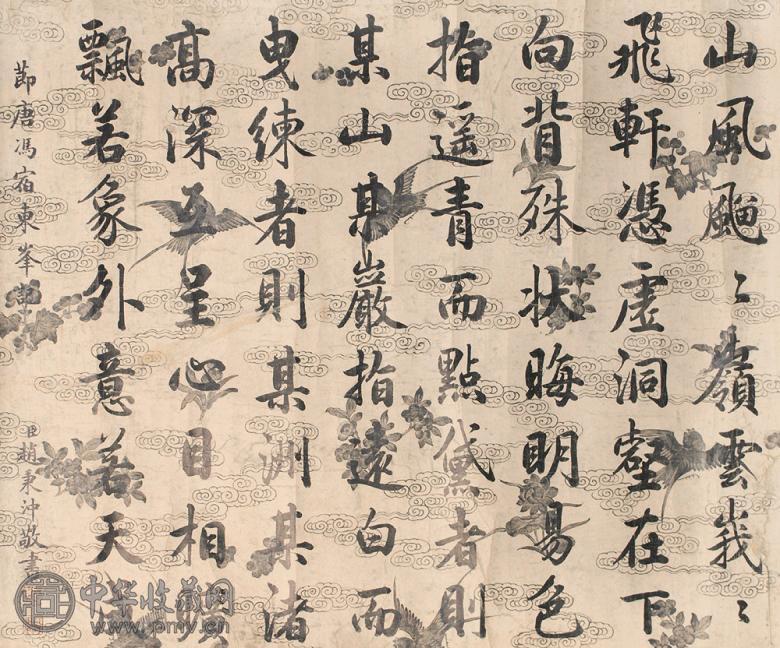 山風颸〻嶺雲峩〻
飛軒憑虛洞壑在下
向背殊狀晦明易色
指遥青而點黛者則
某山某巖指遠白而
曳練者則某淵某渚
高深互呈心目相
飄若象外意若天
節唐馮宿東峯
臣趙秉沖敬書
中华收藏网
www.pmv.cn